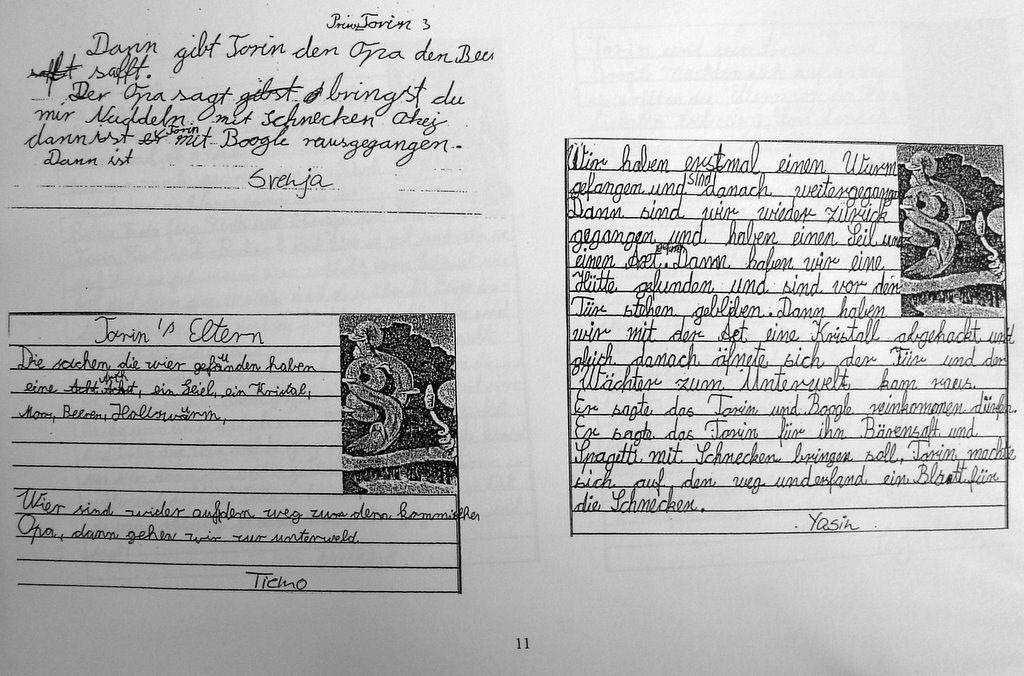 Prinz Torin 3
Dann gibt Torin den Opa den Beer
safft.
Der Opa sagt bringst du
mir Nuddeln mit Schnecken Okej
dann isst Torin mit Boogle rausgegangen.
Dann ist
Svenja
Torin's Eltern
Die sachen die wier gefunden haben
eine Acht, ein Seiel, ein Kristal,
Moos, Beeren, Holtswürm,
Wier sind wider aufdem weg zum dem kommischen
Opa, dann gehen wir zur unterweld
Ticmo
Wir haben erstmal einen Wurm
gefangen und sind danach weitergegangn
Dann sind wir wieder zurück
gegangen und haben einen Seil und
einen Axt. Dann haben wir eine
Hütte gefunden und sind vor der
Tür stehen gebliben. Dann haben
wir mit der Axt eine Kristall abgehackt und
gleich danach äfnete sich der Tür und der
Wächter zum Unterwelt kam raus.
Er sagte das Torin und Boogle reinkommen dürfen.
Er sagte das Torin für ihn Bärensaft und
Spagetti mit Schnecken bringen soll, Torin machte
sich auf den weg underfand ein Blatt für
die Schnecken.
Yasin
11